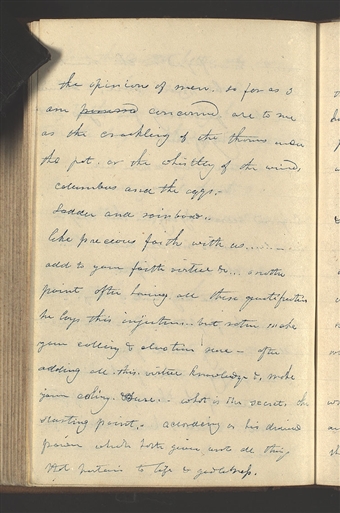 the opinion of men. so far as I
am possessed concerned, are to me
as the crackling of the thorns under
the pot. or the whistling of the wind.
Columbus and the eggs.
Ladder and rainbow.
like precious faith with us........
add to your faith virtue &c... another
point after having all these qualifications
he lays this injunction. but rather make
your calling & election sure - after
adding all this. virtue knowledge &c, make
your calling sure.. what is the secret. the
starting point. - according as his divine
power which hath given unto all things
that pertain to life & godliness.